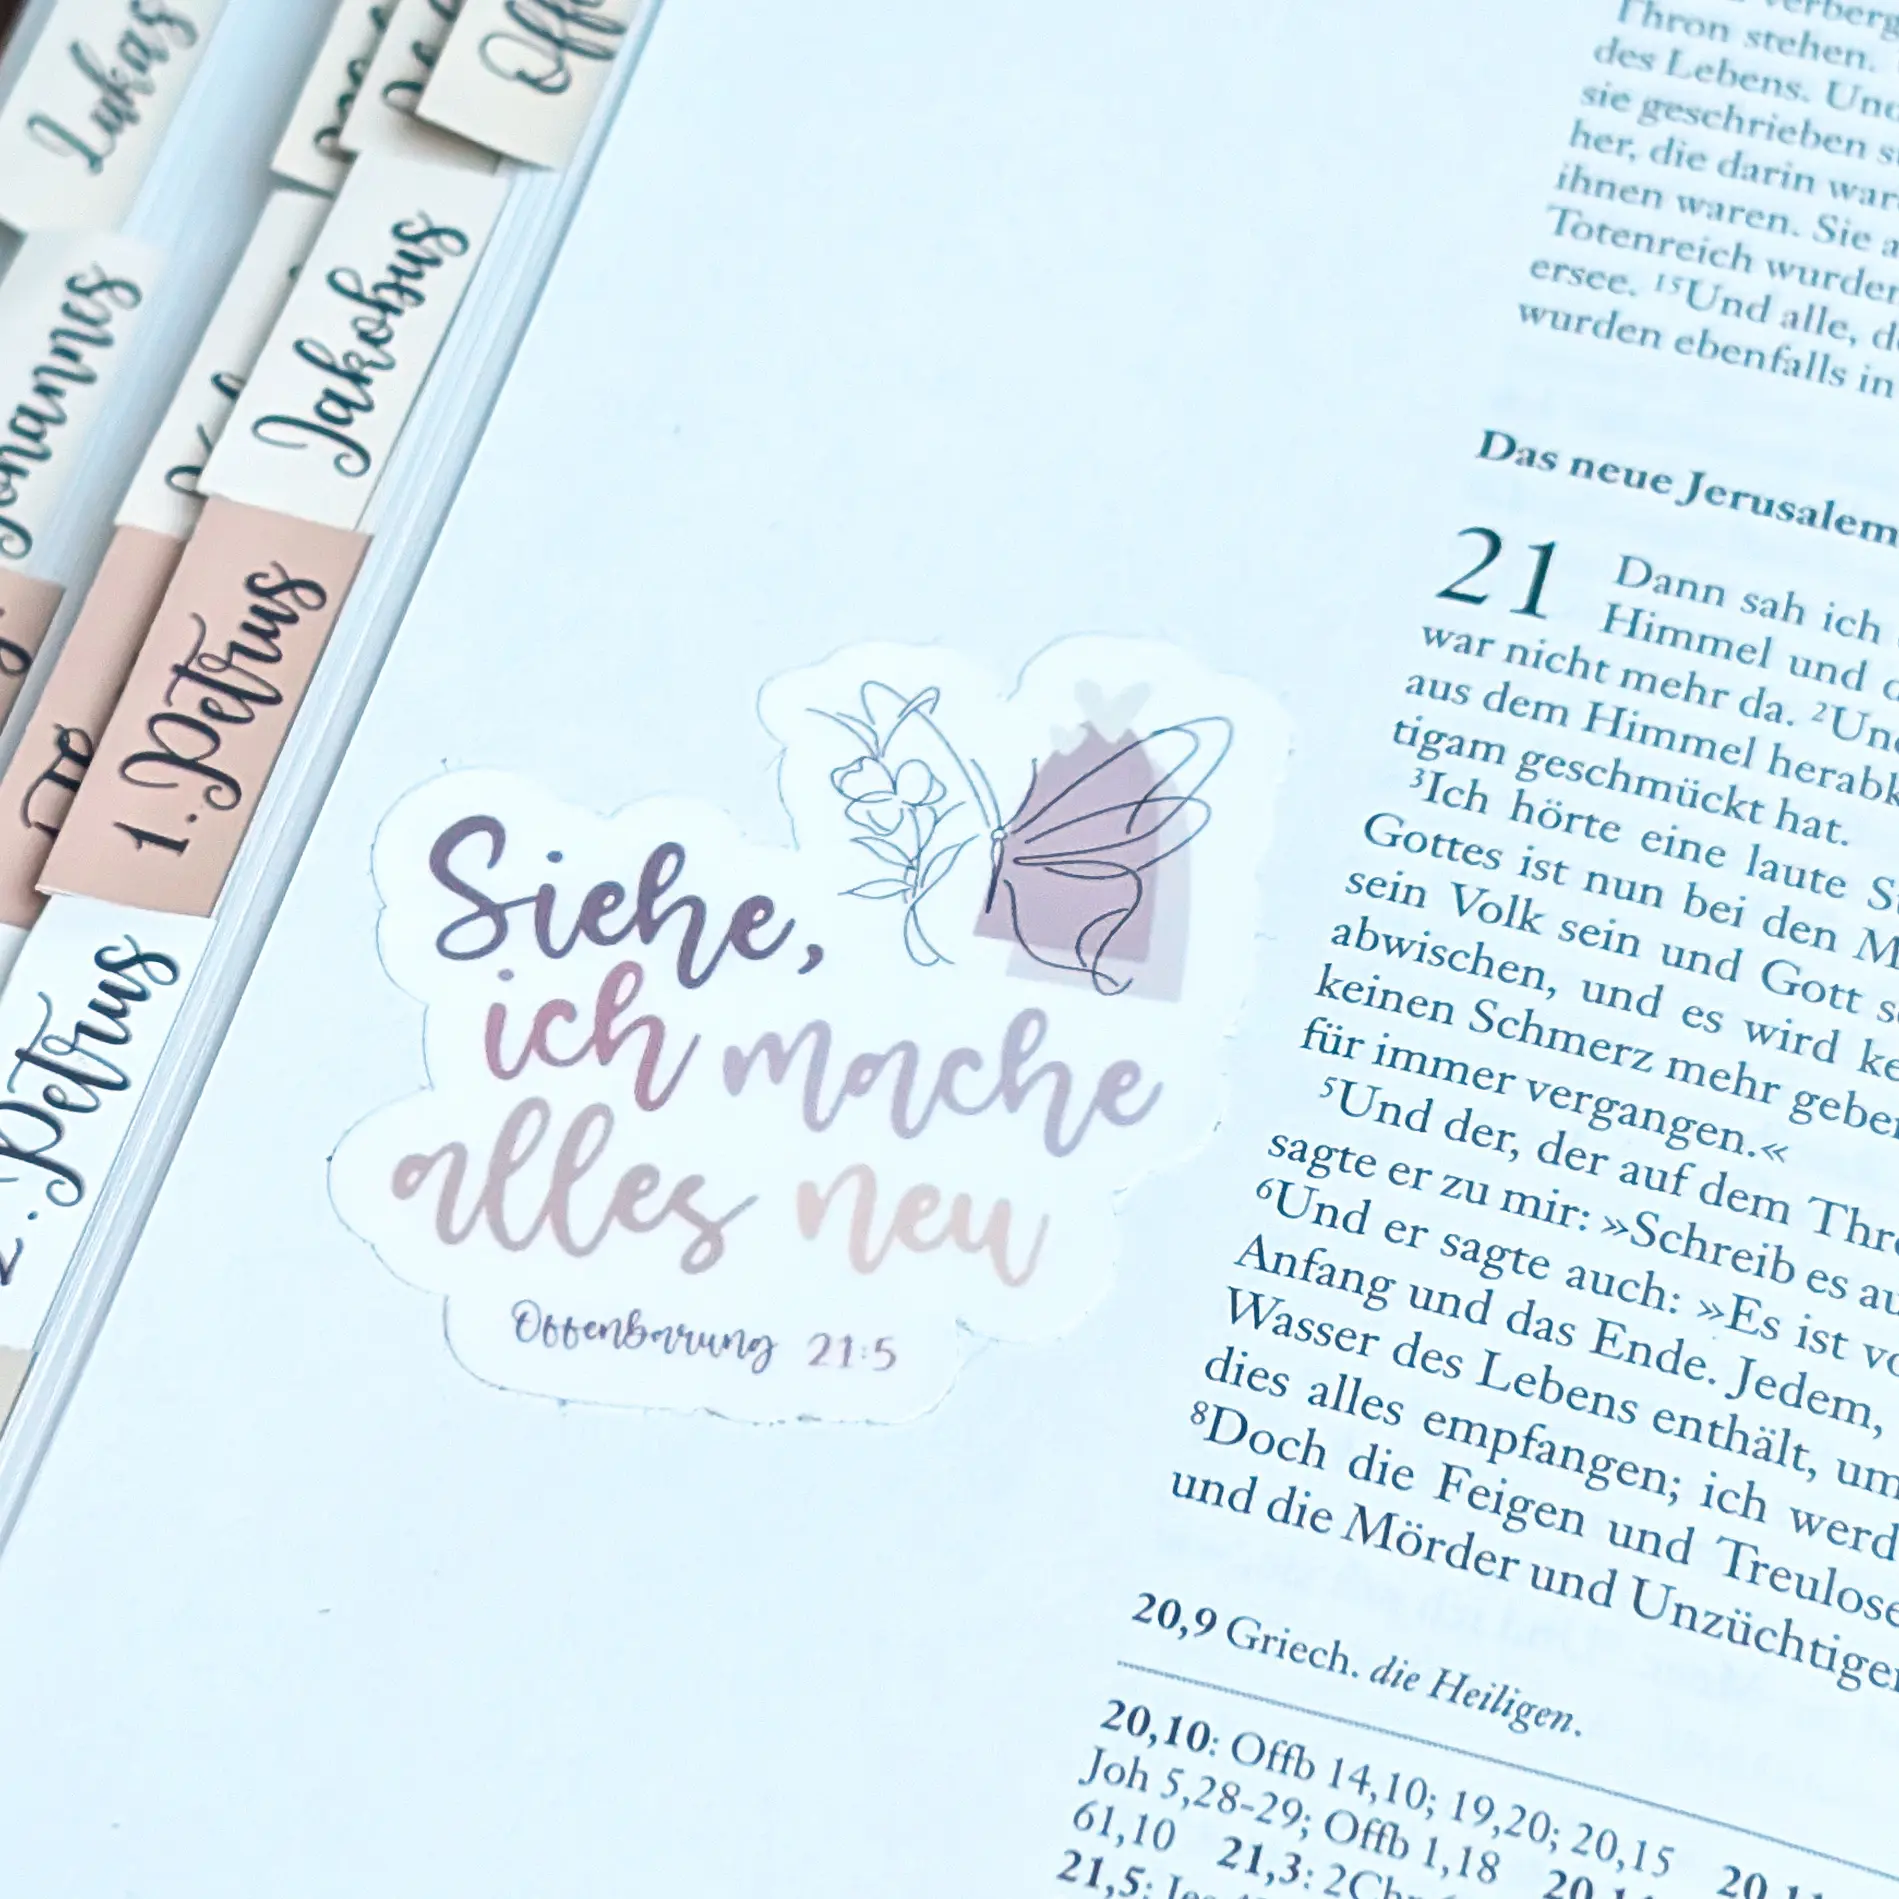 Lukas
Off
Jakobus
1. Petrus
2. Petrus
Siehe,
ich mache
alles neu
Offenbarung 21:5
Thron stehen.
des Lebens. Und
sie geschrieben
her, die darin
ihnen waren. Sie
Totenreich wurden
ersee. ¹⁵Und alle,
wurden ebenfalls in
Das neue Jerusalem
21 Dann sah ich
Himmel und
war nicht mehr da. ²Und
aus dem Himmel herab
tigam geschmückt hat.
³Ich hörte eine laute
Gottes ist nun bei den
sein Volk sein und Gott
abwischen, und es wird
keinen Schmerz mehr
für immer vergangen.«
⁵Und der, der auf dem
sagte er zu mir: »Schreib es
⁶Und er sagte auch: »Es ist
Anfang und das Ende. Jedem,
Wasser des Lebens enthält,
dies alles empfangen; ich
⁸Doch die Feigen und Treulose
und die Mörder und Unzüchtige
20,9 Griech. die Heiligen.
20,10: Offb 14,10; 19,20; 20,15
Joh 5,28-29; Offb 1,18
61,10 21,3:
21,5: